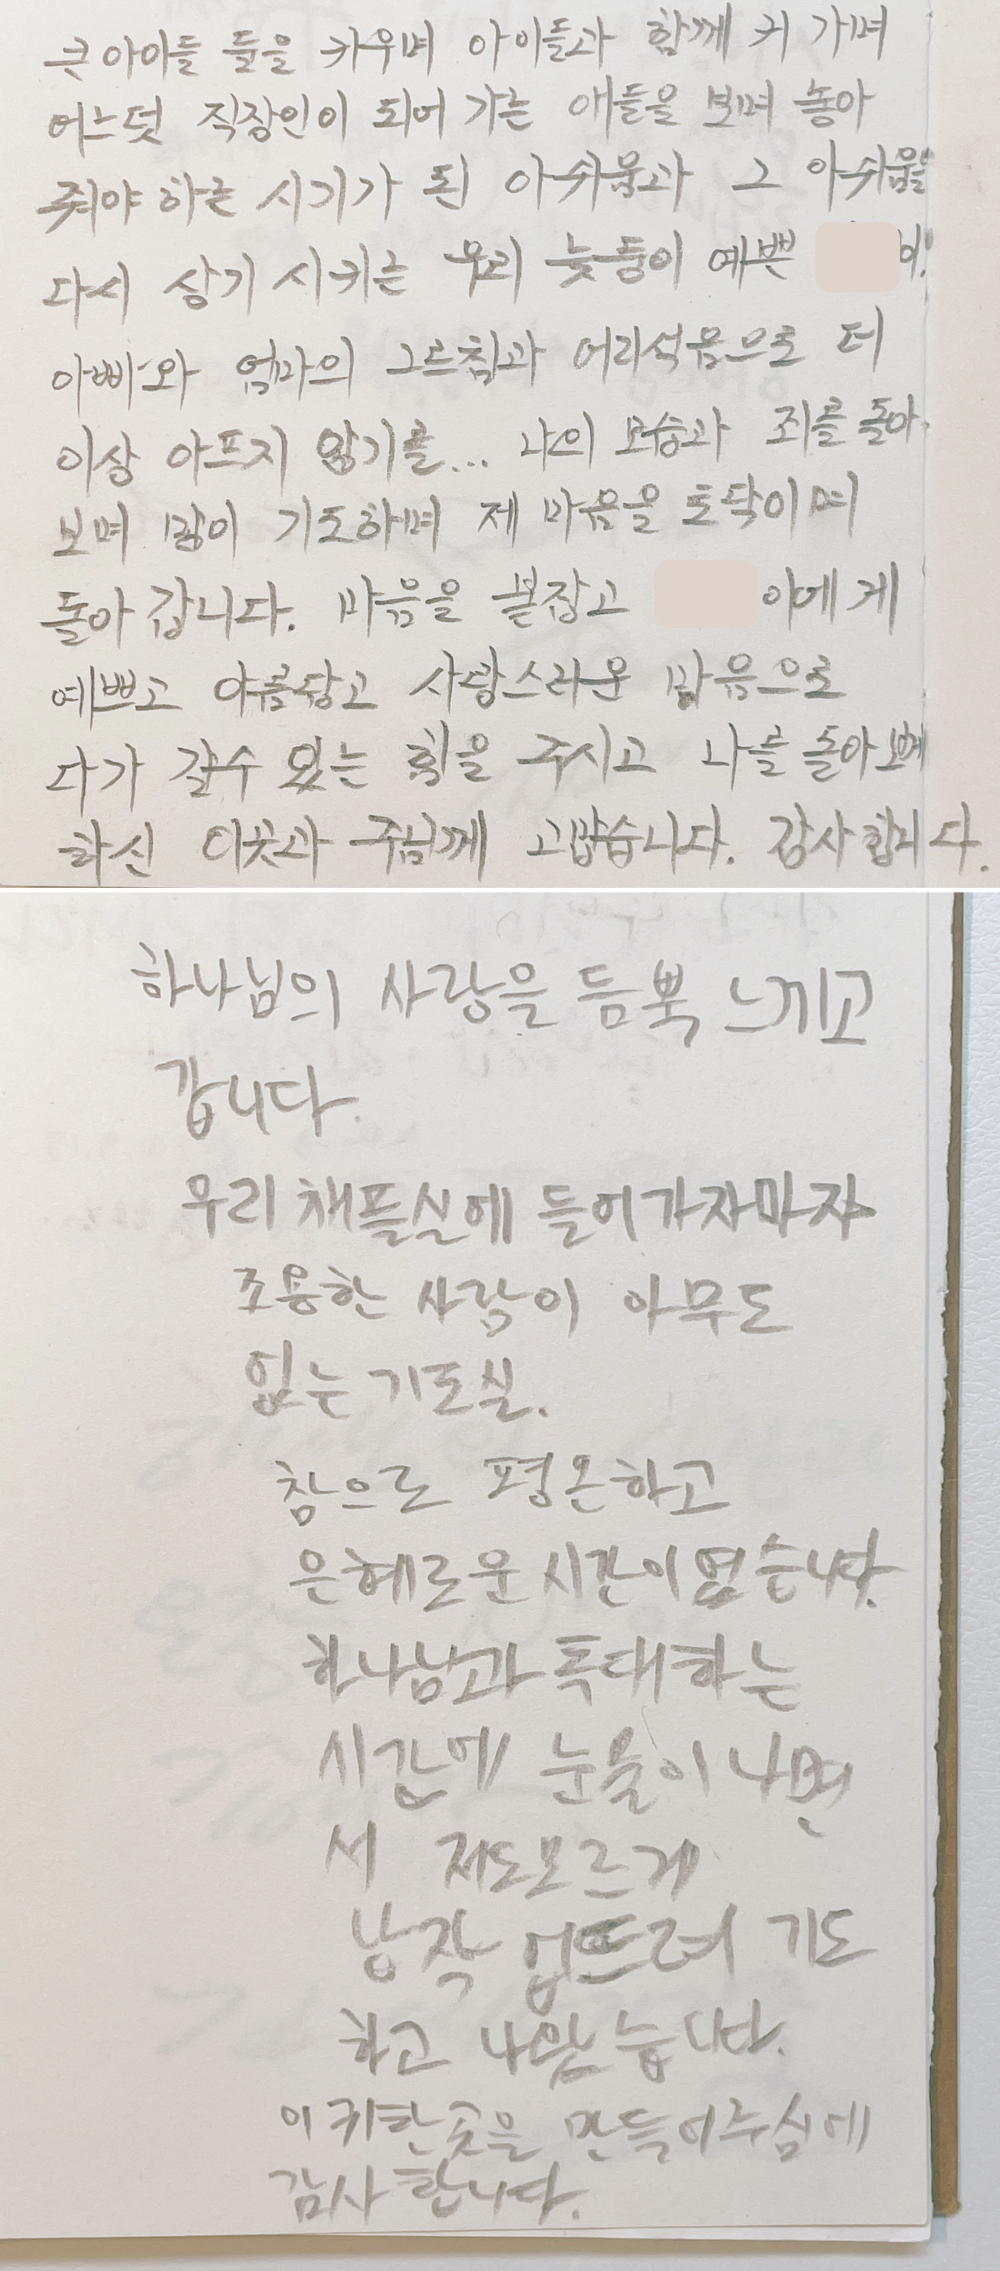 큰아이들 둘을 키우며 아이들과 함께 커 가며
어느덧 직장인이 되어 가는 애들을 보며 놓아
줘야 하는 시기가 된 아쉬움과 그 아쉬움을
다시 상기 시키는 우리 늦둥이 예쁜 이!
아빠와 엄마의 그르침과 어리석음으로 더
이상 아프지 않기를... 나의 모습과 죄를 돌아
보며 많이 기도하며 제 마음을 토닥이며
돌아 갑니다. 마음을 붙잡고 아에게
예쁘고 아름답고 사랑스러운 맘음으로
다가 갈수 있는 힘을 주시고 나를 돌아보께
하신 이곳과 주님께 고맙습니다. 감사합니다.
하나님의 사랑을 듬뿍 느끼고
갑니다.
우리 채플실에 들어가자마자
조용한 사람이 아무도
없는 기도실.
참으로 평온하고
은혜로운 시간이었습니다.
하나님과 독대하는
시간에 눈물이 나면
서 저도모르게
납작 엎드려 기도
하고 나왔습니다.
이 귀한 곳을 만들어주심에
감사합니다.